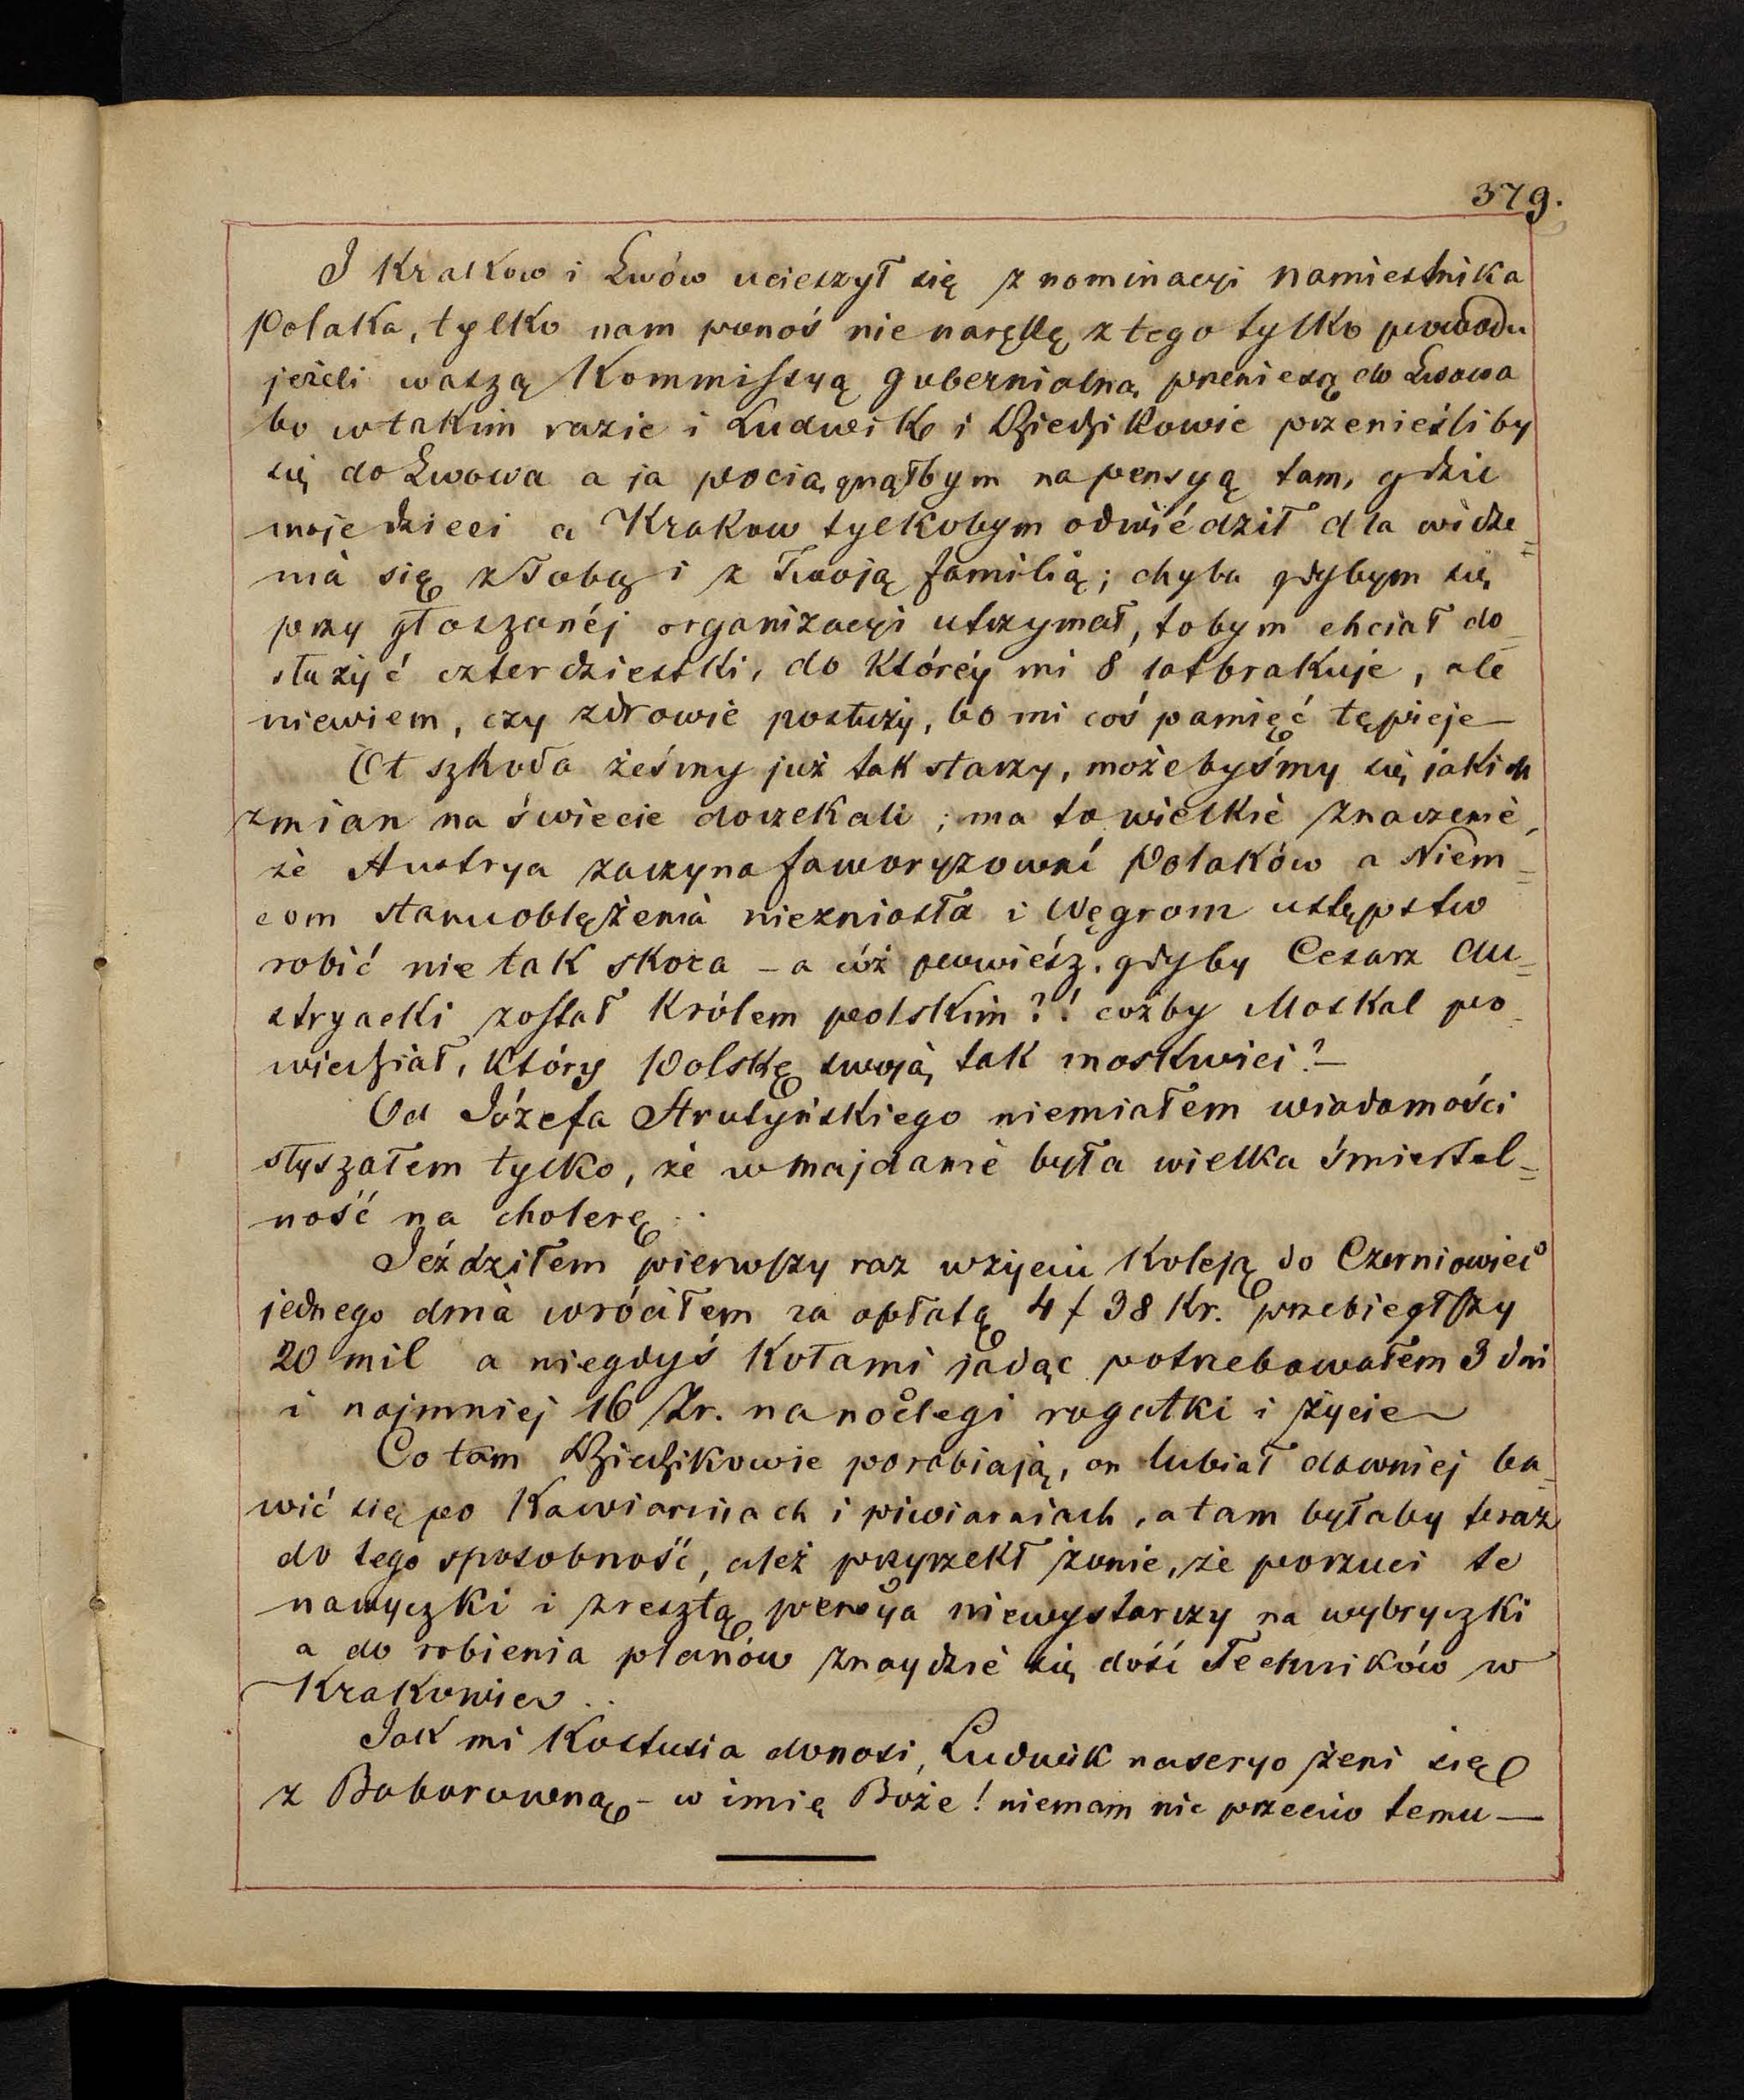 379.
I Krakow i Lwów ucieszył się z nominacyi namiestnika
Polaka, tylko nam ponoś nie narękę z tego tylko powodu
jeżeli waszą Kommissyą gubernialną przeniesą do Lwowa
bo wtakim razie i Ludwik i Dziedzikowie przenieśliby
się do Lwowa a ja pociągnąłbym na pensyą tam, gdzie
moje dzieci a Krakow tylkobym odwiédził dla widze=
nia się z Tobą i z Twoją familią; chyba gdybym się
przy głoszanéj organizacyi utrzymał, tobym chciał do_
służyć czterdziestki, do któréy mi 8 lat brakuje, ale
niewiem, czy zdrowie posłuży, bo mi coś pamięć tępieje—
Ot szkoda żeśmy już tak starzy, możebyśmy się jakich
zmian na świecie doczekali; ma to wielkie znaczenie,
że Austrya zaczyna faworyzować Polaków a Niem=
com stanu oblężenia niezniosła i Węgrom ustępstw
robić nie tak skora – a cóż powiész, gdyby Cesarz Au=
stryacki został Królem polskim?! cożby Moskal po_
wiedział, który Polskę swoją tak moskwici?—
Od Józefa Strutyńskiego niemiałem wiadomości
słyszałem tylko, że w majdanie była wielka śmiertel=
ność na cholerę..
Jeździłem pierwszy raz wżyciu Koleją do Czerniowiec
jednego dnia wróciłem za opłatą 4 f 38 Kr. przebiegłszy
20 mil a niegdyś Kołami jadąc potrzebowałem 3 dni
i najmniej 16 Zr. na noclegi rogatki i życie
Co tam Dziedzikowie porabiają, on lubiał dawniej ba_
wić się po Kawiarniach i piwiarniach, a tam byłaby teraz
do tego sposobność, ależ przyrzekł żonie, że porzuci te
nawyczki i zresztą pensya niewystarczy na wybryczki
a do robienia planów znaydzie się dość Techników w
Krakowie..
Jak mi Kostusia donosi, Ludwik naseryo żeni się
z Boborowną – w imię Boże! niemam nic przeciw temu—